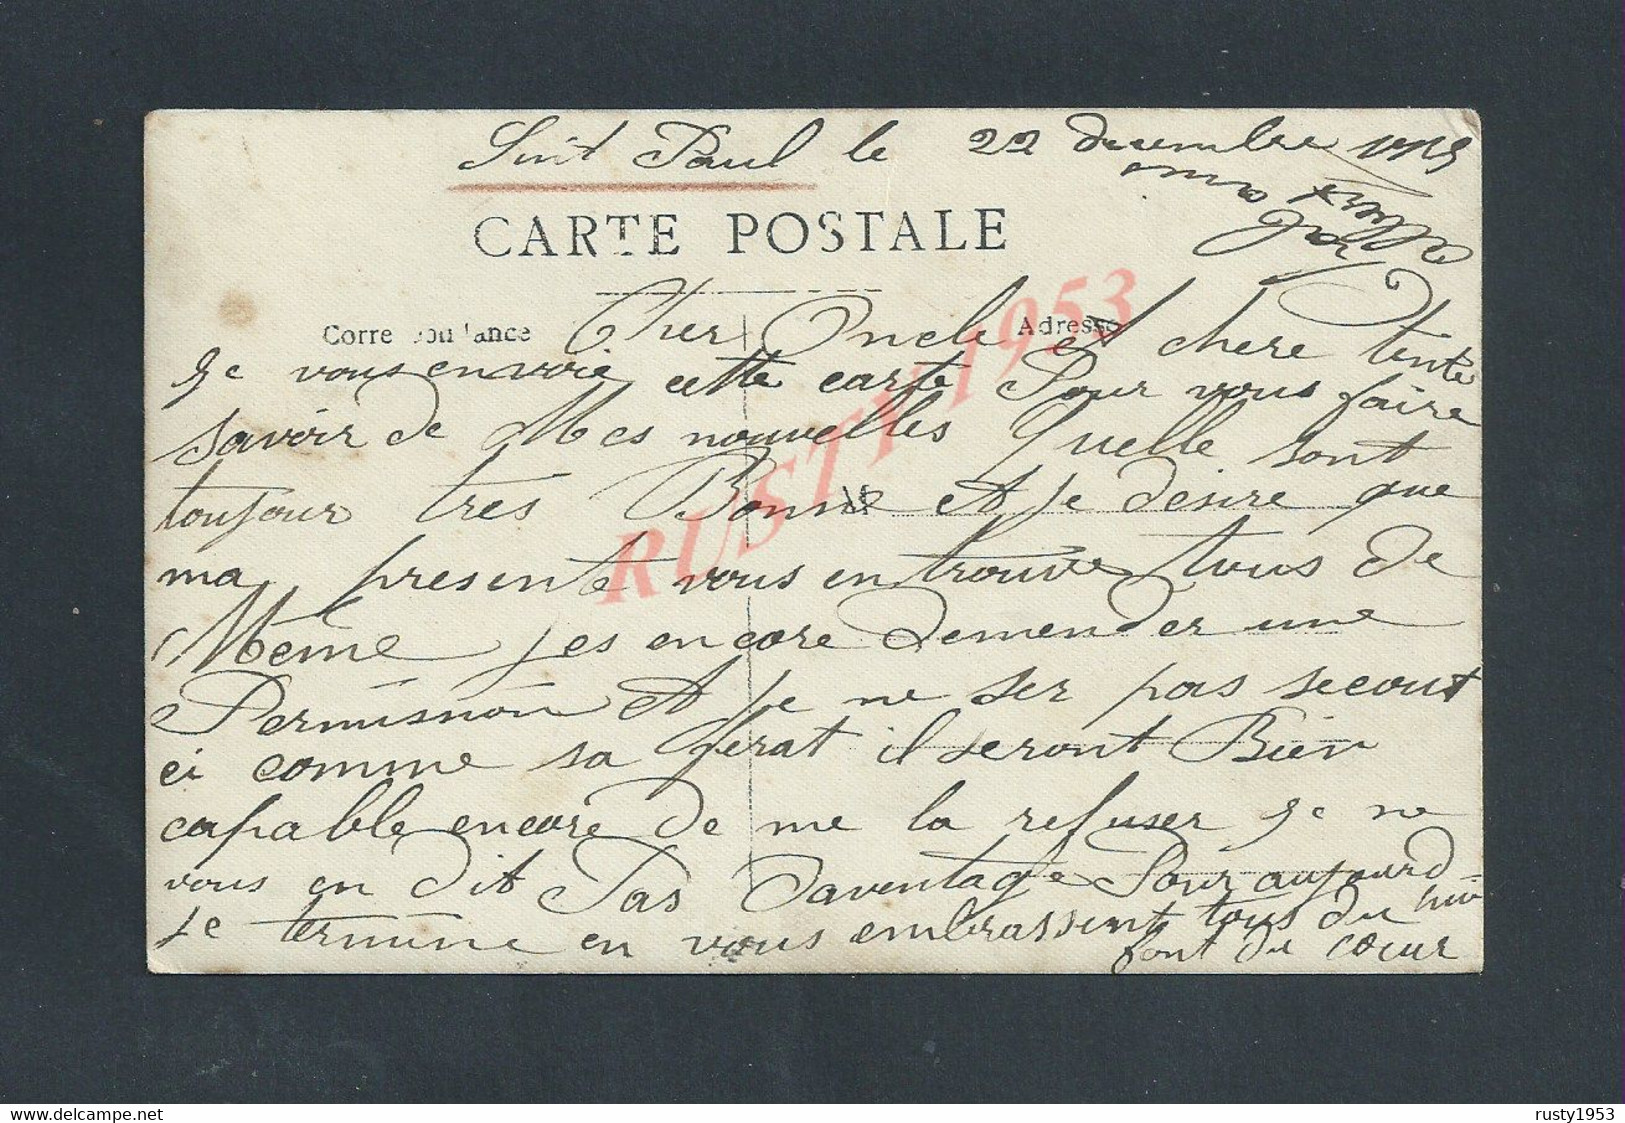 Sint Paul le 22 decembre
CARTE POSTALE
Correspondance Adresse
Cher Oncle et chere tente
Je vous envoie cette carte Pour vous faire
savoir de Mes nouvelles Quelle sont
toujour tres Bonne et je desire que
ma presente vous en trouve tous de
Meme jes encore demender une
Permission et je ne ser pas secout
ci comme sa ferat il seront Bien
capable encore de me la refuser Je ne
vous en dit Pas Daventage Pour aujourd-
hui
je termine en vous embrassent tous du
font du coeur
RUSTY 1953
rusty1953